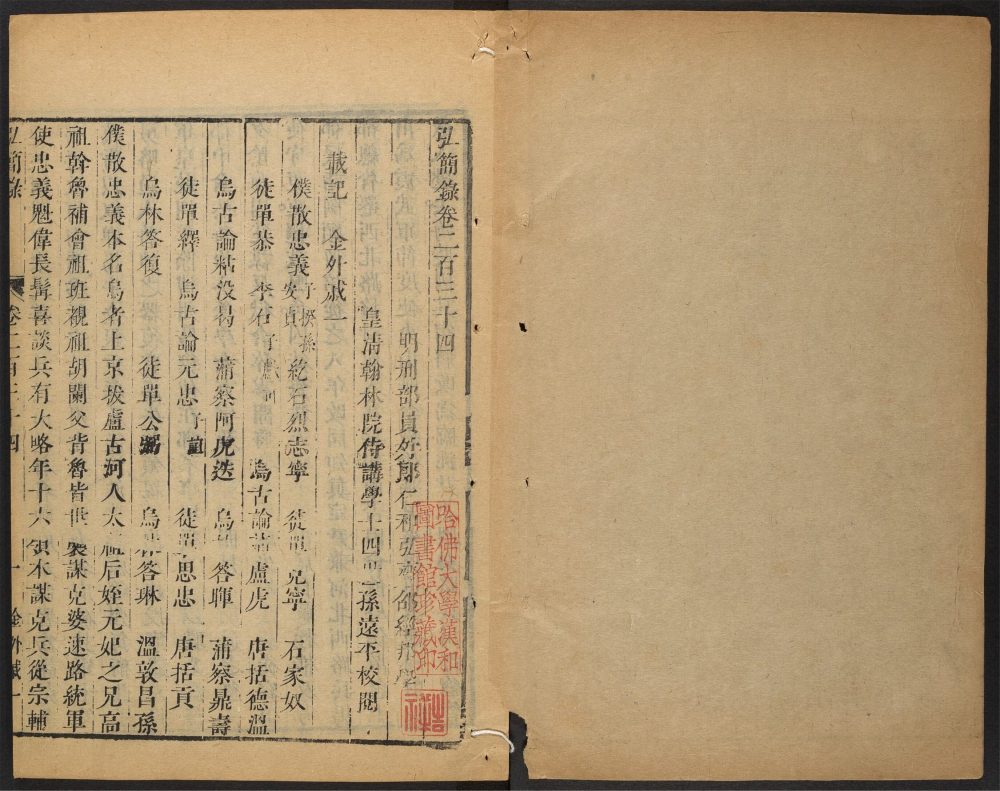 弘簡錄卷二百三十四
明刑部員外郎仁和弘齋邵經邦學
皇清翰林院侍講學士四世孫遠平校閱
載記 金外戚一
僕散忠義子揆 孫安貞 紇石烈志寧 徒單克寧 石家奴
徒單恭 李石子 烏古論 盧虎 唐括德溫
烏古論粘没曷 蒲察阿虎迭 烏 答暉 蒲察鼎壽
徒單繹 烏古論元忠子 誼 徒單思忠 唐括貢
烏林答復 徒單公弼 烏林答琳 溫敦昌孫
僕散忠義本名烏者上京拔盧古河人太祖后姪元妃之兄高
祖斡魯補會祖班覩祖胡闌父背魯皆世襲謀克婆速路統軍
使忠義魁偉長髯喜談兵有大略年十六領本謀克兵從宗輔
弘簡錄 卷二百三十四 一 金外戚一
哈佛大學漢和
圖書館珍藏印